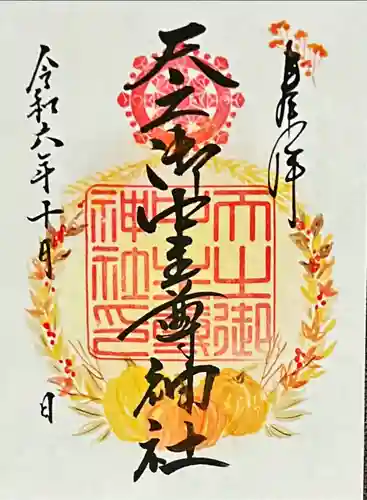 奉拝
天之御中主尊神社
天之御中主尊神社印
令和六年十月 日